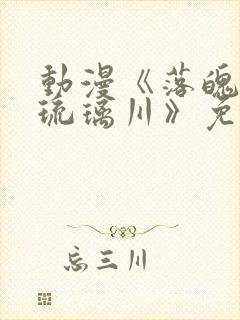 動漫《落魄
琉璃川》免
忘三川